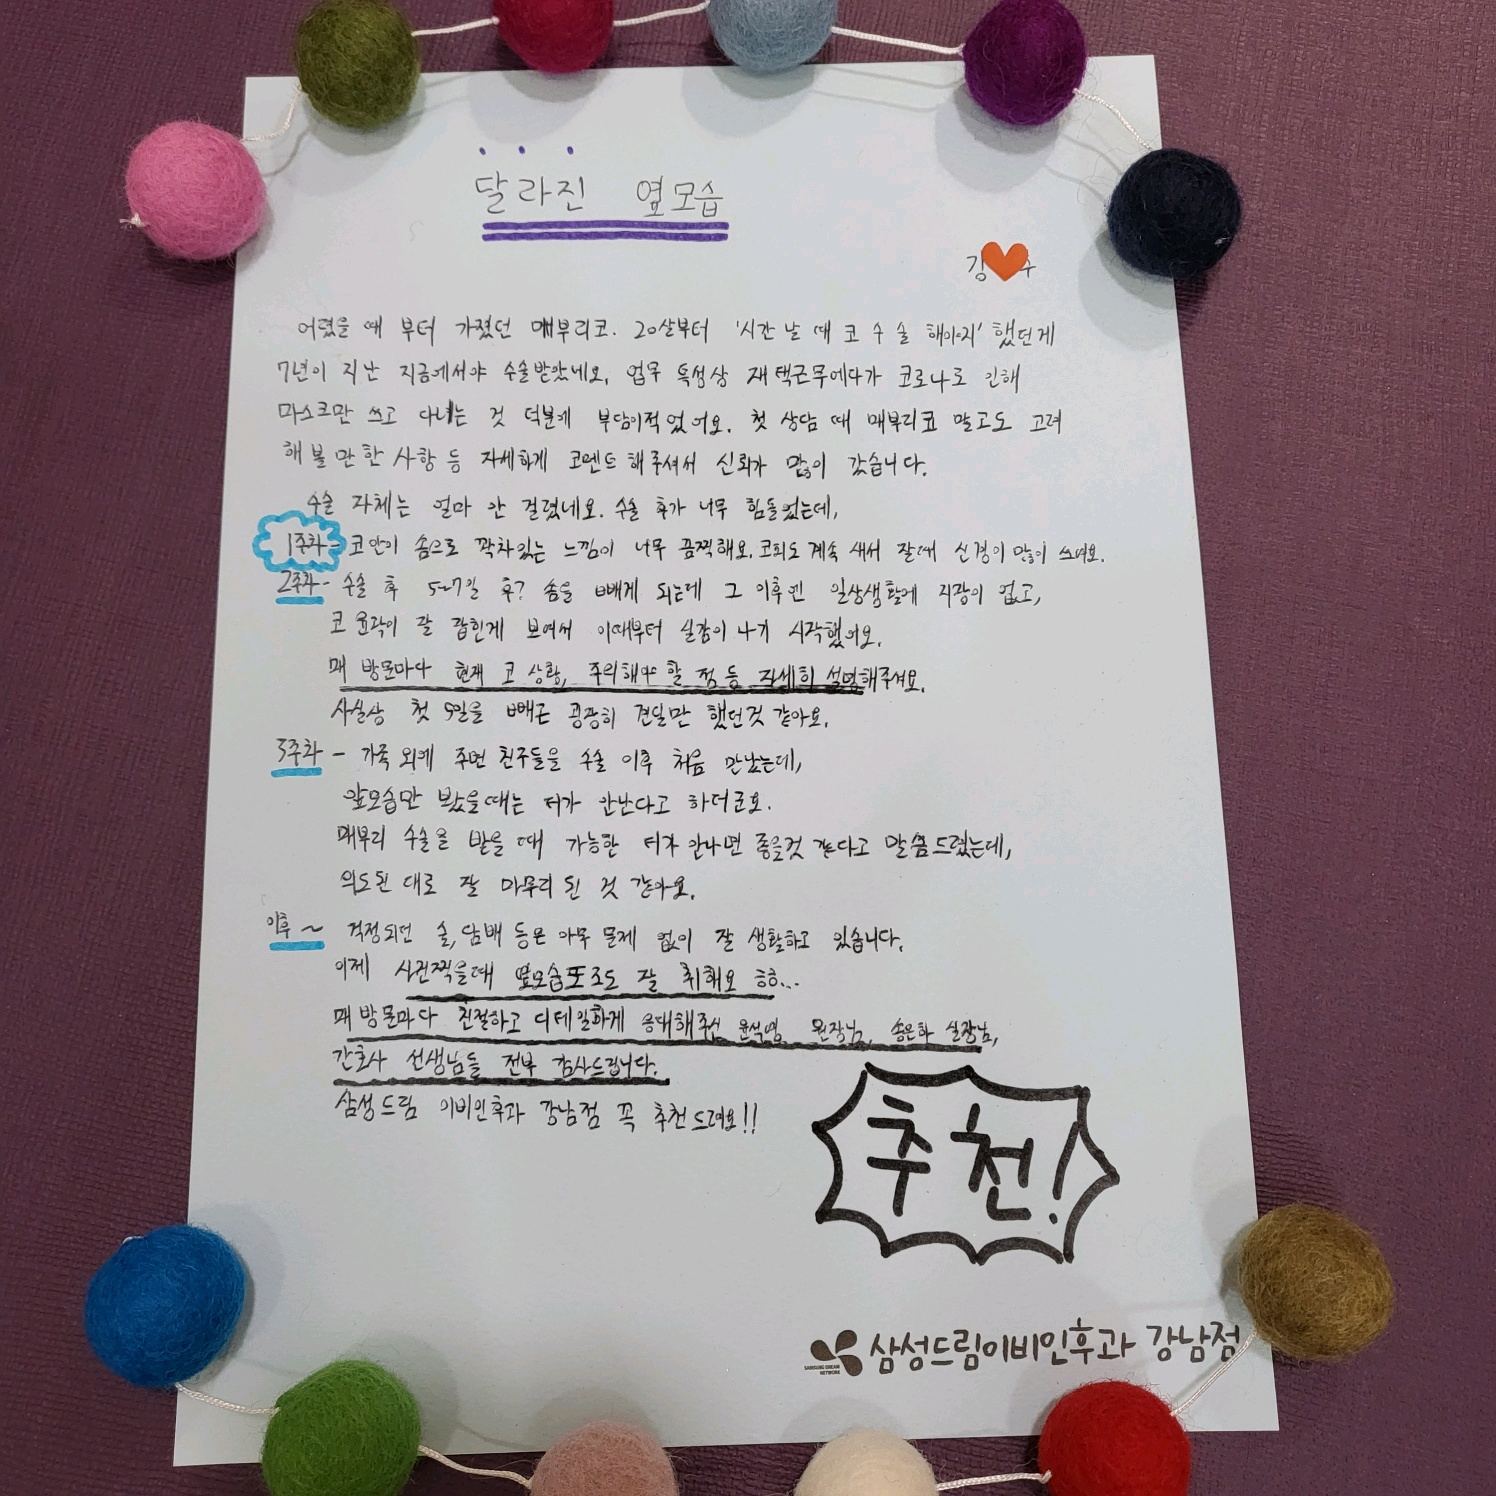 달라진 옆모습
김 수
어렸을 때 부터 가졌던 매부리코. 20살부터 '시간 날 때 코 수술 해야지' 했던게
7년이 지난 지금에서야 수술받았네요. 업무 특성상 재택근무에다가 코로나로 인해
마스크만 쓰고 다니는 것 덕분에 부담이적었어요. 첫 상담 때 매부리코 말고도 고려
해 볼 만 한 사항 등 자세하게 코멘트 해주셔서 신뢰가 많이 갔습니다.
수술 자체는 얼마 안 걸렸네요. 수술 후가 너무 힘들었는데,
1주차 - 코안이 솜으로 꽉차있는 느낌이 너무 끔찍해요. 코피도 계속 새서 잘때 신경이 많이 쓰여요.
2주차 - 수술 후 5~7일 후? 솜을 빼게 되는데 그 이후엔 일상생활에 지장이 없고,
코 윤곽이 잘 잡힌게 보여서 이때부터 실감이 나기 시작했어요.
매 방문마다 현재 코 상황, 주의해야 할 점 등 자세히 설명해주셔요.
사실상 첫 5일을 빼곤 굉장히 견딜만 했던것 같아요.
3주차 - 가족 외에 주변 친구들을 수술 이후 처음 만났는데,
앞모습만 봤을때는 티가 안난다고 하더군요.
매부리 수술을 받을 때 가능한 티가 안나면 좋을것 같다고 말씀드렸는데,
의도된 대로 잘 마무리 된 것 같아요.
이후 ~ 걱정되던 술, 담배 등은 아무 문제 없이 잘 생활하고 있습니다.
이제 사진찍을때 옆모습포즈도 잘 취해요 ㅎㅎ...
매 방문마다 친절하고 디테일하게 응대해주신 윤석영 원장님, 송은하 실장님,
간호사 선생님들 전부 감사드립니다.
삼성드림 이비인후과 강남점 꼭 추천드려요!!
추천!
삼성드림이비인후과 강남점
SAMSUNG DREAM
NETWORK